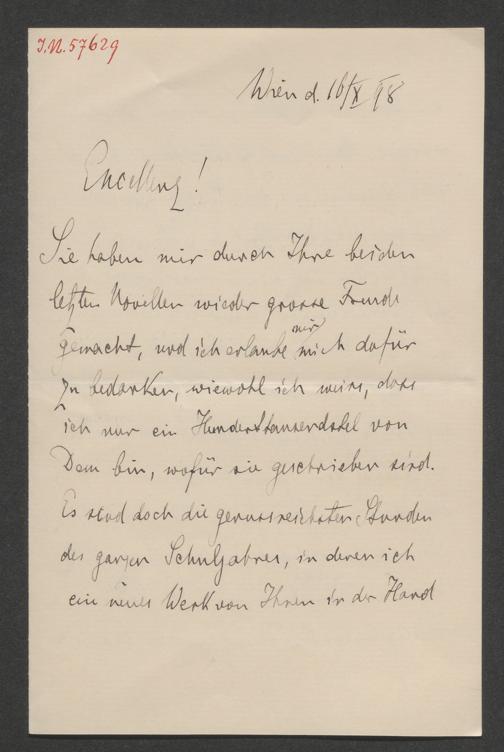 J.N. 57629
Wien d. 16/X 98
Excellenz!
Sie haben mir durch Ihre beiden
letzten Novellen wieder grosse Freude
gemacht, und ich erlaube mir mich dafür
zu bedanken, wiewohl ich weiss, dass
ich nur ein Hunderttausendstel von
Dem bin, wofür sie geschrieben sind.
Es sind doch die genussreichsten Stunden
des ganzen Schuljahres, in denen ich
ein neues Werk von Ihnen in der Hand